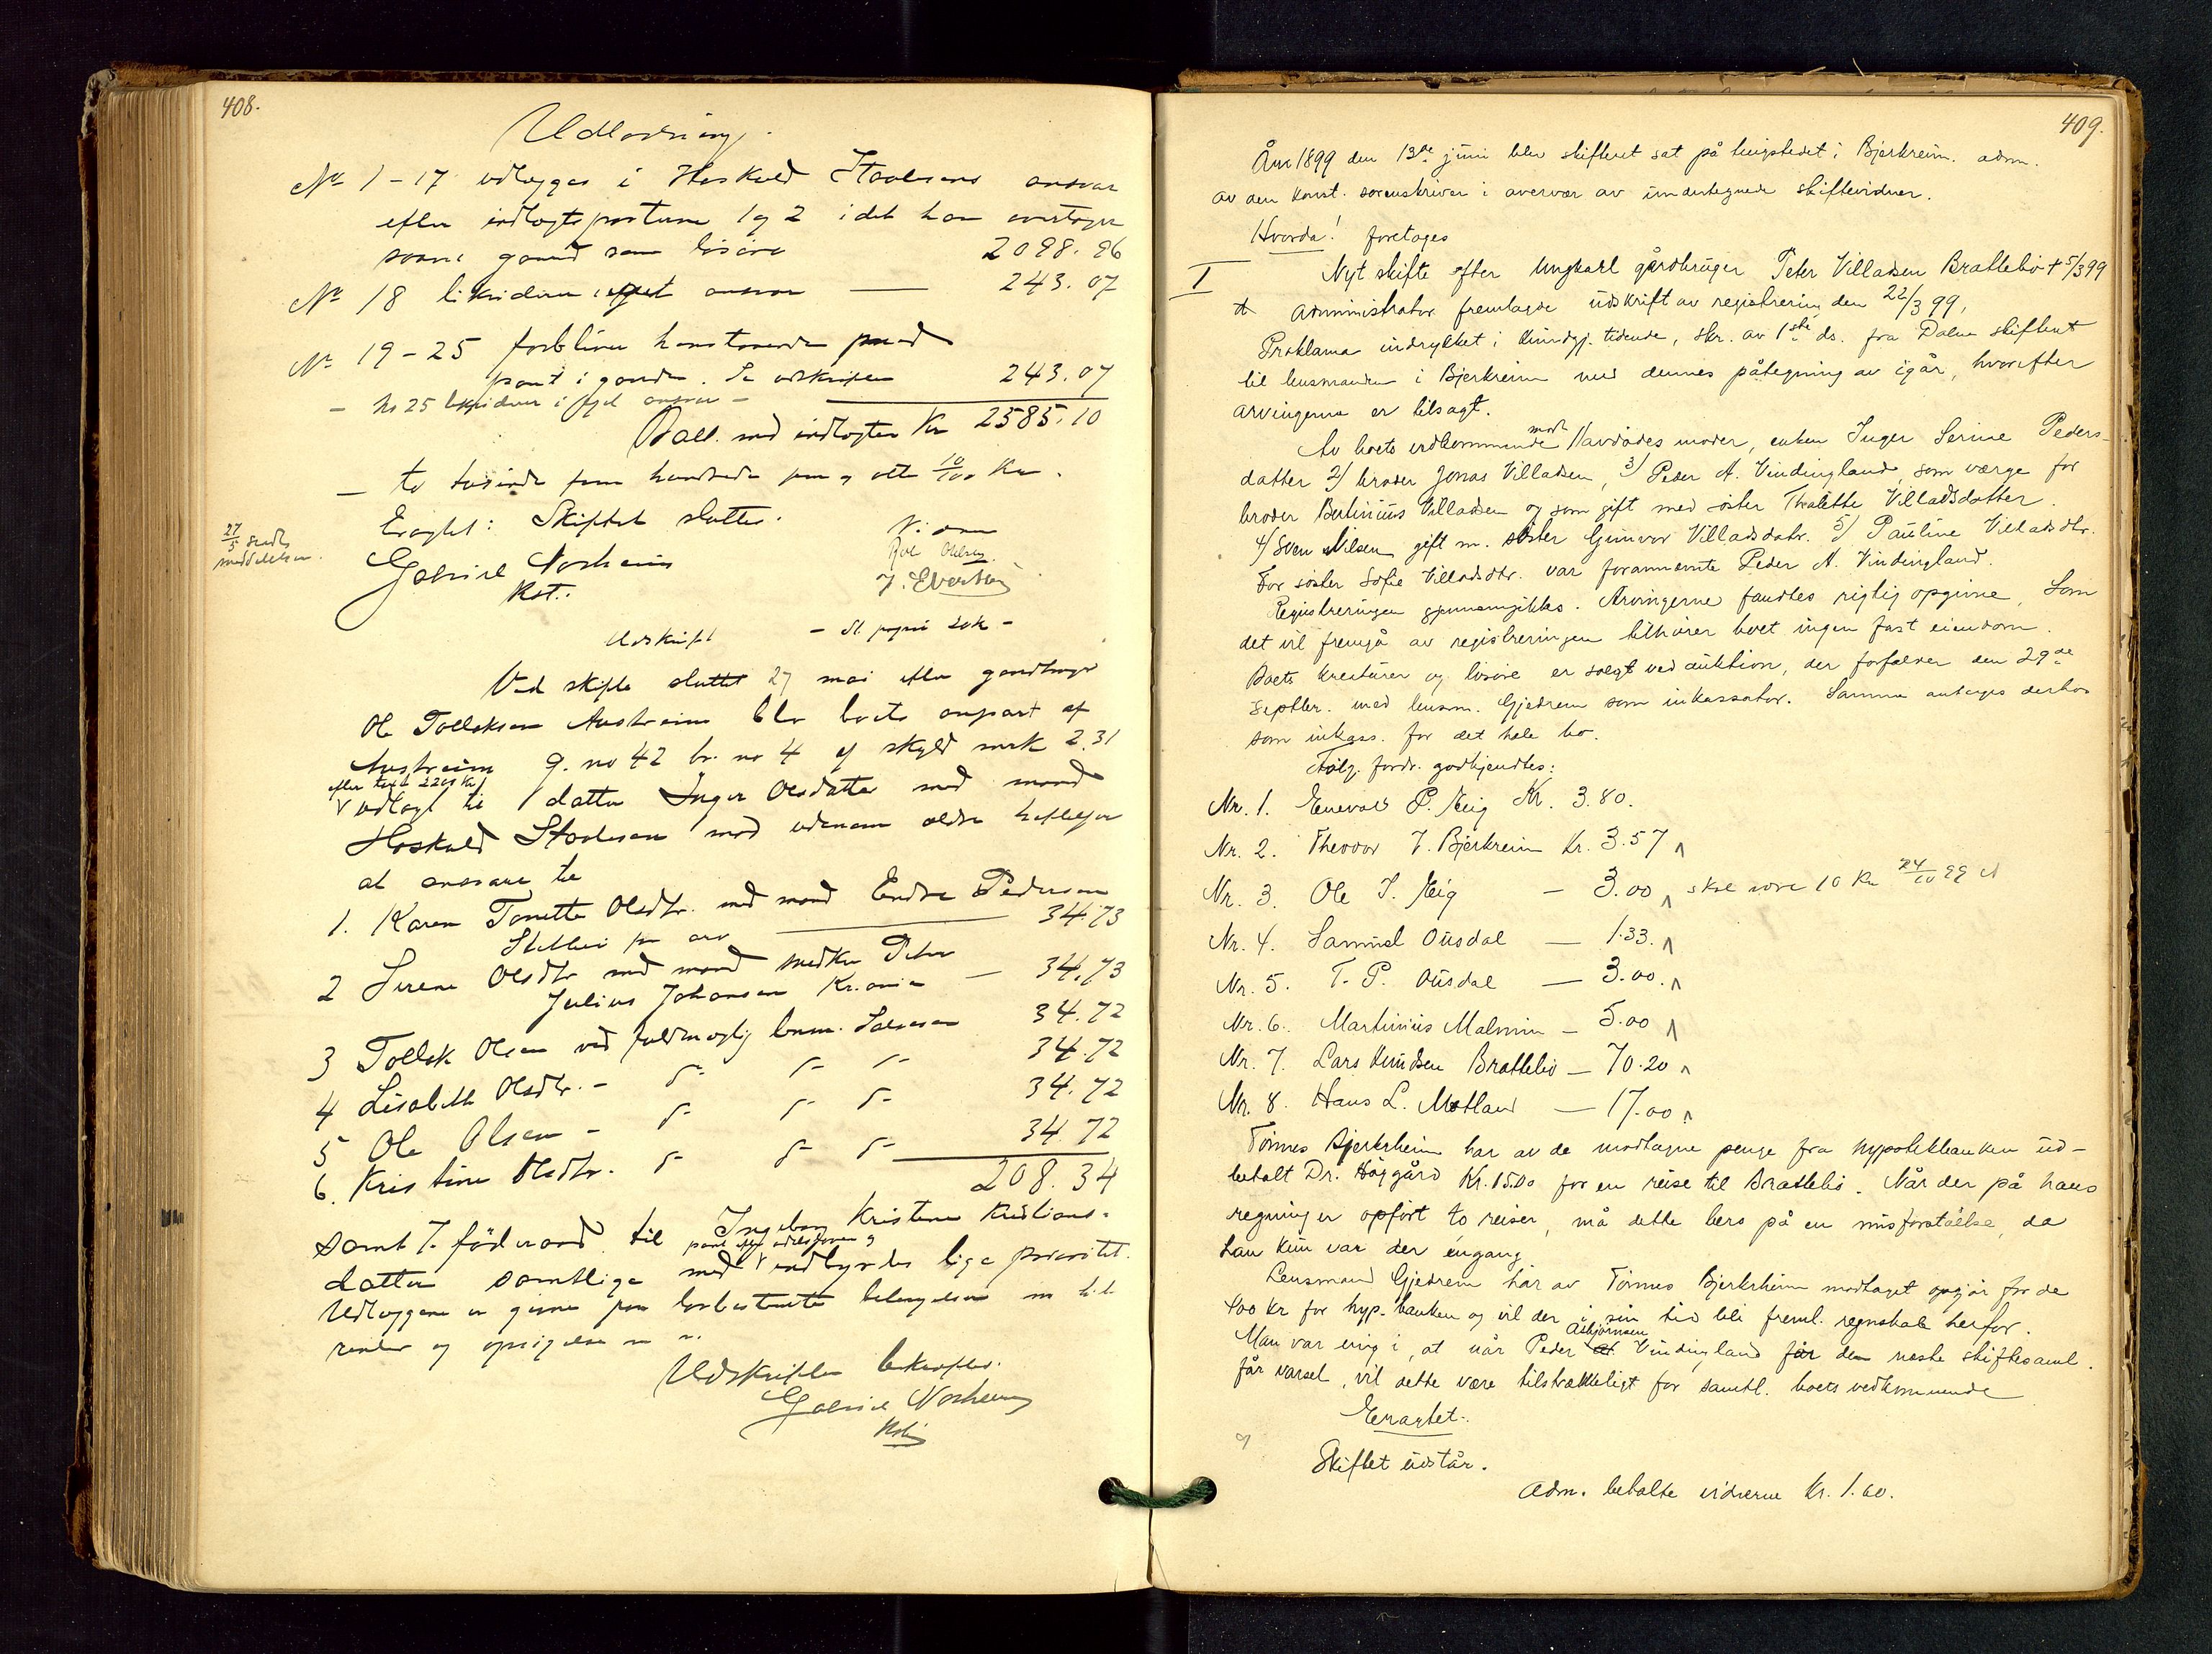 408.
Udlodning.
No 1-17 udlægges i Hoskuld Staalesens ansvar
efter indtægtsposterne 1 og 2 idet han overtager
saavel gaard som løsøre 2098.96
No 18 likideres i eget ansvar — 243.07
No 19-25 forbliver henstaaende med
pant i gaarden. Se udskriften 243.07
- No 25 likviderer i eget ansvar -
Ball. med indtægten Kr 2585.10
- to tusinde fem hundrede fem og otti 10/100 Kr.
27/5 sendt
meddelelser.
Eragtet: Skiftet sluttes.
Gabriel Norheim
Kst.
Vidner
J. Evertsen
Udskrift - St. papir 20 k -
Ved skifte sluttet 27 mai efter gaardbruger
Ole Tollaksen Austreim blev boets anpart af
Austreim g. no 42 br. no 4 af skyld mark 2.31
efter taxt 2200 Kr
udlagt til datter Inger Olsdatter med mand
Hoskuld Staalesen mod udenom ældre heftelser
at ansvare til
1. Karen Tonette Olsdtr. med mand Endre Pedersen
for arv — 34.73
2 Serene Olsdtr med mand snedker Peter
Julius Johansen Kr.ania — 34.73
3 Tollak Olsen ved fuldmægtig lensm. Salvesen 34.72
4 Lisabeth Olsdtr. - 34.72
5 Ole Olsen - 34.72
6. Kristine Olsdtr. 34.72
208.34
samt 7. föderaad til Ingeborg Kristene Kristians-
datter samtlige med indbyrdes lige prioritet.
Udlæggene er givne paa lovbestemte betingelser m. h. t.
renter og opsigelse m. m.
Udskriften bekræftes.
Gabriel Norheim
Kst.
409.
År 1899 den 13de juni blev skifteret sat på tingstedet i Bjerkreim. adm.
av den konst. sorenskriver i overvær av undertegnede skiftevidner.
Hvorda! foretages
I Nyt skifte efter Ungkarl gårdbruger Peter Villadsen Brattebö + 5/3 99
Administrator fremlagde udskrift av registrering den 22/3 99,
Proklama indrykket i kundgj. tidende, skr. av 1ste ds. fra Dalene skifteret
til lensmanden i Bjerkreim med dennes påtegning av igår, hvorefter
arvingerne er tilsagt.
Av boets vedkommende mødt 1/ avdødes moder, enken Inger Serine Peders-
datter 2/ broder Jonas Villadsen, 3/ Peder A. Vindingland, som værge for
broder Bertinius Villadsen og som gift med søster Thalette Villadsdatter.
4/ Sven Nilsen gift m. søster Gunvor Villadsdatr. 5/ Pauline Villadsdtr.
For søster Sofie Villadsdtr. var forannævnte Peder A. Vindingland.
Registreringen gjennemgikkes. Arvingerne fandtes rigtig opgivne, Som
det vil fremgå av registreringen tilhører boet ingen fast eiendom.
Boets kreaturer og løsøre er solgt ved auktion, der forfalder den 29de
septbr. med lensm. Gjedrem som inkassator. Samme antages derhos
som inkass. for det hele bo.
Følg. fordr. godkjendtes:
Nr. 1. Enevald P. Eeig Kr. 3.80.
Nr. 2. Theodor T. Bjerkreim Kr. 3.57
Nr. 3. Ole J. Eeig — 3.00 skal være 10 Kr 24/10 99
Nr. 4. Samuel Ousdal — 1.33.
Nr. 5. T. P. Ousdal — 3.00.
Nr. 6. Martinius Malmin — 5.00
Nr. 7. Lars Knudsen Brattebö — 70.20
Nr. 8. Hans L. Motland — 17.00
Tönnes Bjerkrheim har av de modtagne penge fra hypotekbanken ud-
betalt Dr. Höjgård Kr. 15.00 for en reise til Brattebö. Når der på hans
regning er opført to reiser, må dette bero på en misforståelse, da
han kun var der éngang.
Lensmand Gjedrem har av Tönnes Bjerkrheim modtaget opgjör for de
400 kr for hyp-banken og vil der i sin tid bli freml. regnskab herfor.
Man var enig i, at når Peder Asbjørnsen Vindingland får den næste skiftesaml.
får varsel, vil dette være tilstrækkeligt for samtl. boets vedkommende
Eragtet:
Skiftet udstår.
Adm. betalte vidnerne Kr. 1.60.